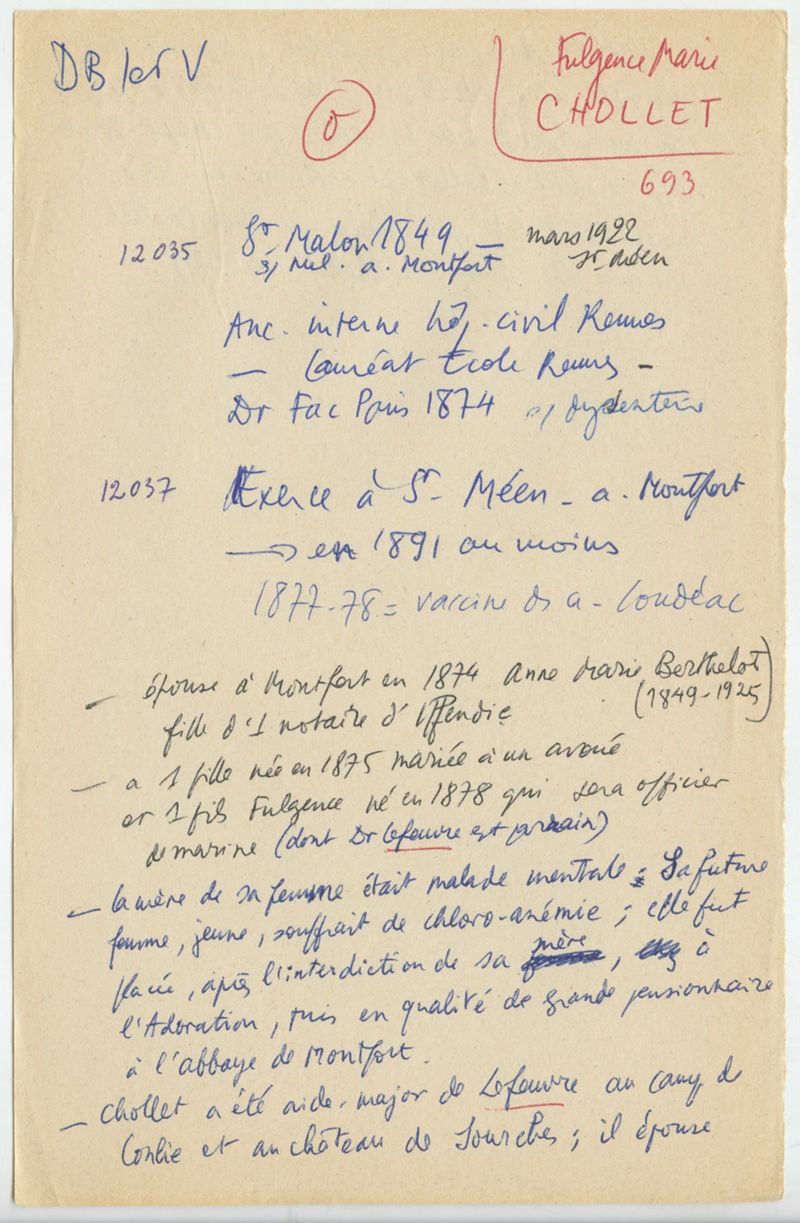 DB let V
Fulgence Marie
CHOLLET
693
12035
St Malon 1849 — mars 1922
s/ Mel. a. Montfort St Méen
Anc. interne hôp. civil Rennes
— Lauréat Ecole Rennes –
Dr Fac Paris 1874 s/ dysenterie
12037
Exerce à St-Méen - a. Montfort
→ en 1891 au moins
1877-78 = vaccine ds a - Loudéac
— épouse à Montfort en 1874 Anne Marie Berthelot
(1849-1925)
fille d'1 notaire d'Iffendic
— a 1 fille née en 1875 mariée à un avoué
et 1 fils Fulgence né en 1878 qui sera officier
de marine (dont Dr Lefeuvre est parrain)
— la mère de sa femme était malade mentale ; Sa future
femme, jeune, souffrait de chloro-anémie ; elle fut
placée, après l'interdiction de sa mère, à
l'Adoration, puis en qualité de grande pensionnaire
à l'abbaye de Montfort.
— Chollet a été aide-major de Lefeuvre au camp de
Conlie et au château de Sourches ; il épouse